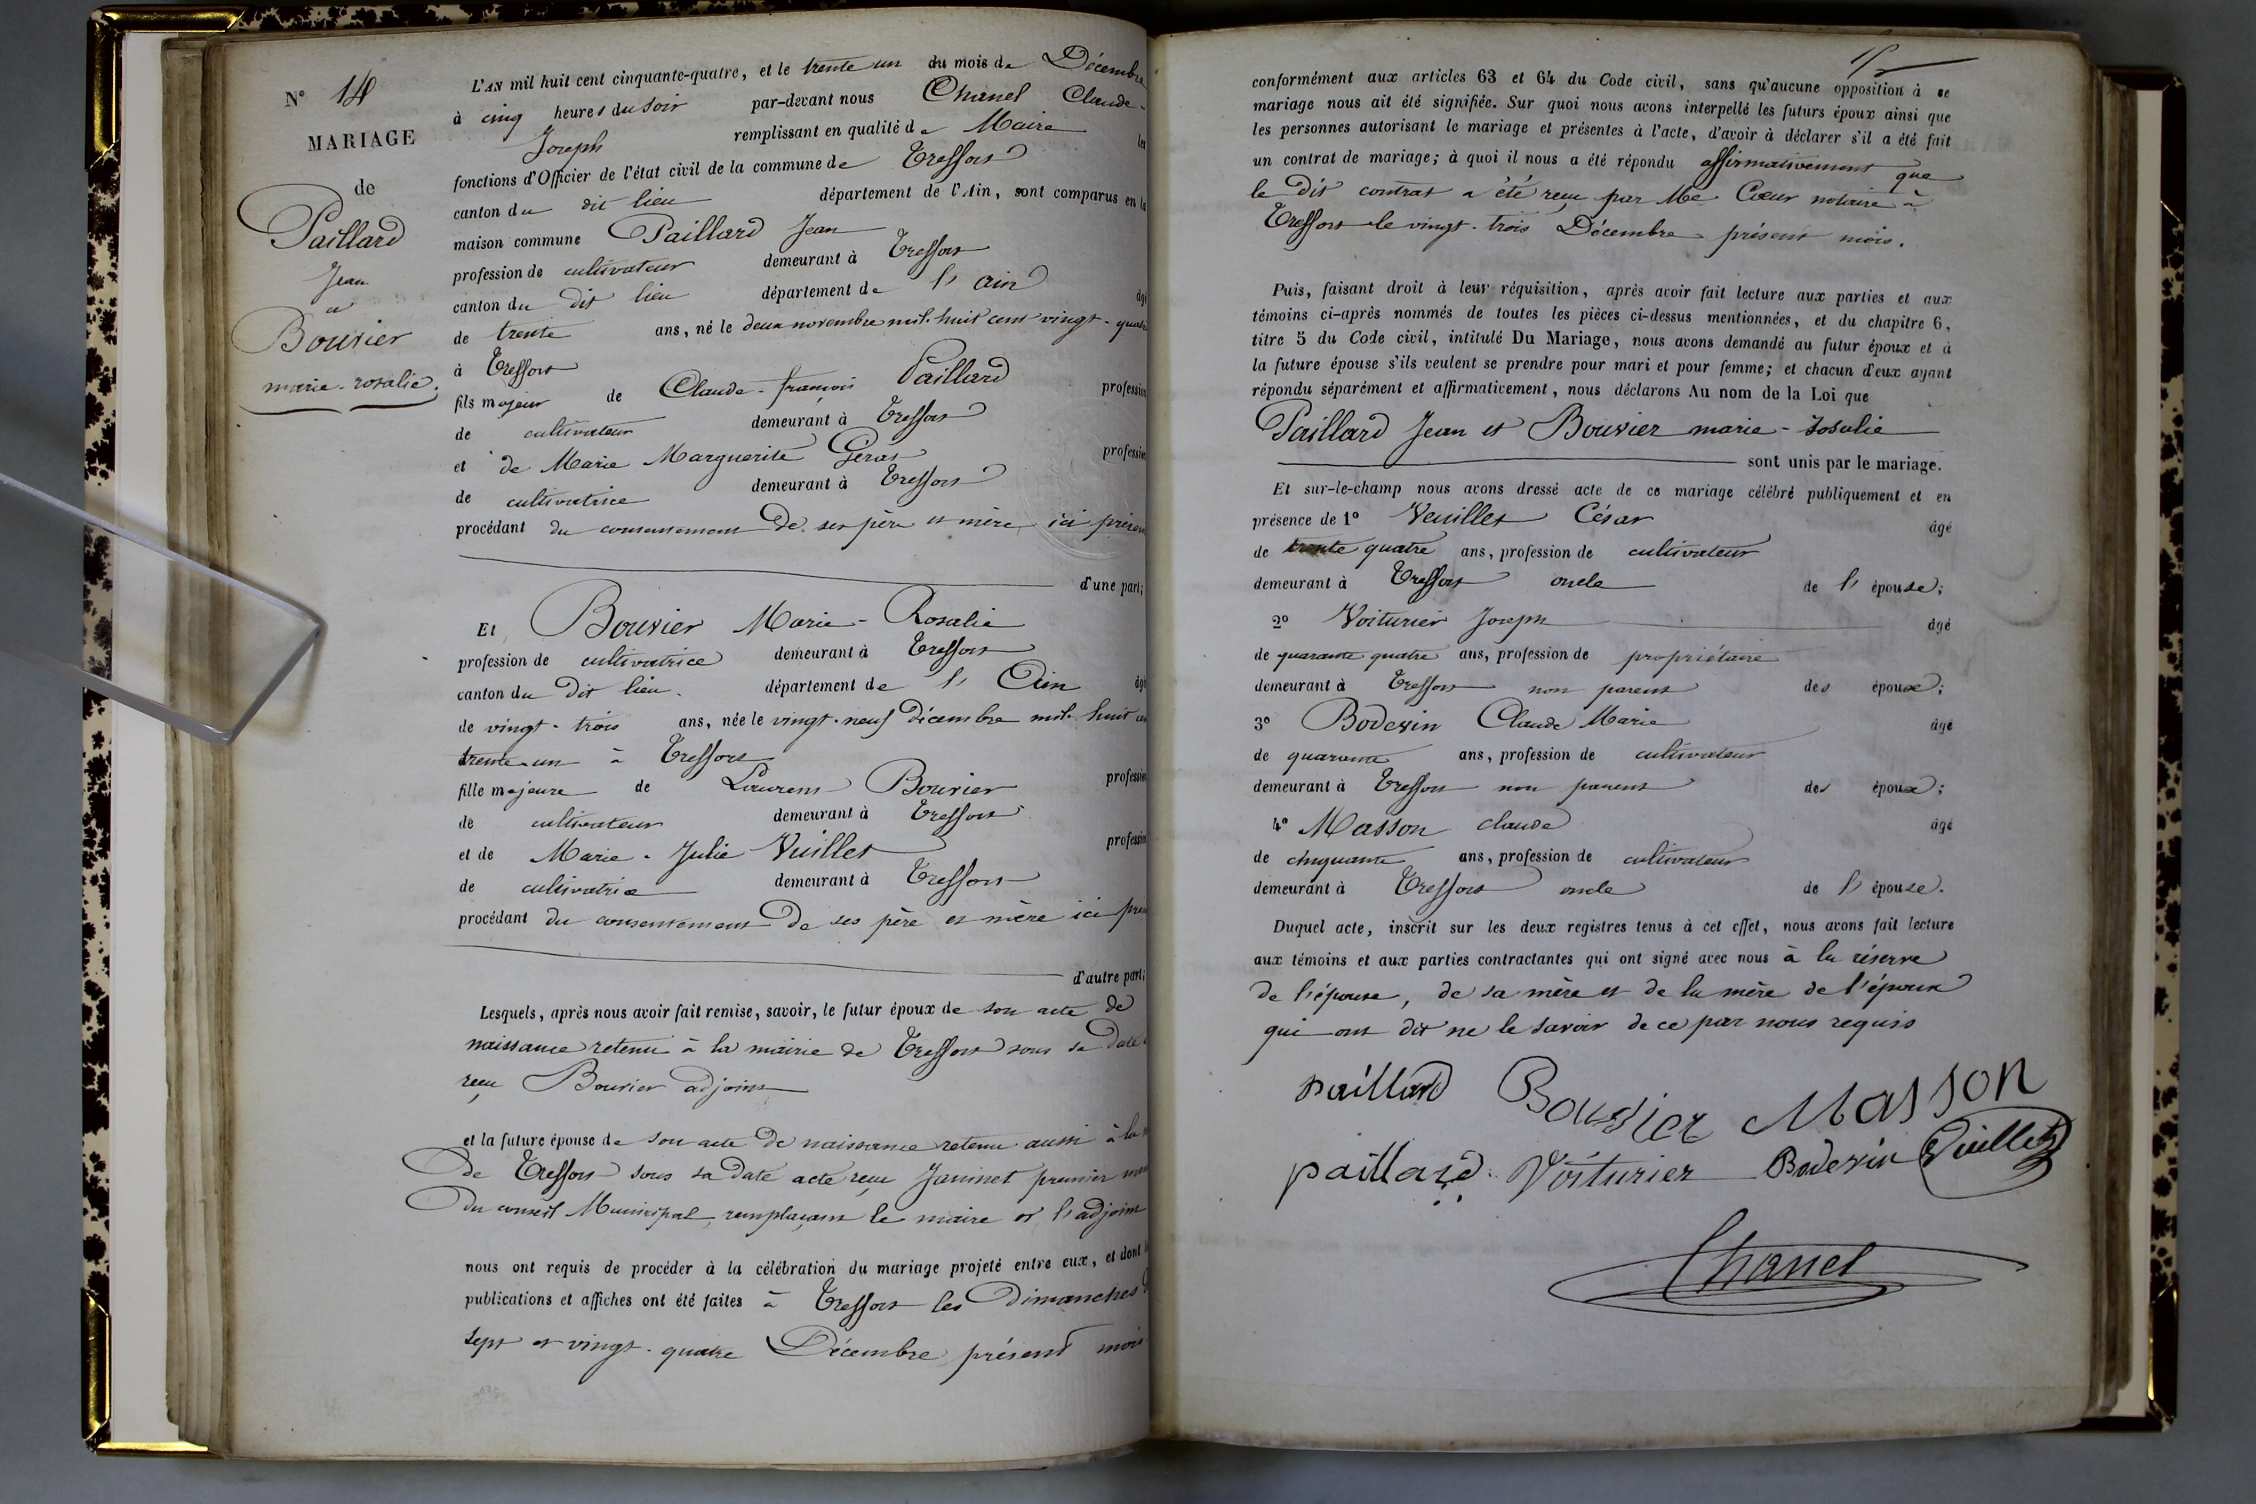 N° 14
MARIAGE
de
Paillard
Jean
et
Bouvier
marie-rosalie.
L'AN mil huit cent cinquante-quatre, et le trente un du mois de Décembre
à cinq heures du soir par-devant nous Chanel Claude-
Joseph remplissant en qualité de Maire les
fonctions d'Officier de l'état civil de la commune de Treffort
canton du dit lieu département de l'Ain, sont comparus en la
maison commune Paillard Jean
profession de cultivateur demeurant à Treffort
canton du dit lieu département de l'ain âgé
de trente ans, né le deux novembre mil-huit cent vingt-quatre
à Treffort
fils majeur de Claude-françois Paillard profession
de cultivateur demeurant à Treffort
et de Marie Marguerite profession
de cultivatrice demeurant à Treffort
procédant du consentement de ses père et mère ici présen
d'une part;
Et Bouvier Marie-Rosalie
profession de cultivatrice demeurant à Treffort
canton du dit lieu. département de l'Ain âgé
de vingt-trois ans, née le vingt-neuf décembre mil-huit cen
trente-un à Treffort
fille majeure de Laurent Bouvier profession
de cultivateur demeurant à Treffort
et de Marie-Julie Vuillet profession
de cultivatrice demeurant à Treffort
procédant du consentement de ses père et mère ici prés
d'autre part;
Lesquels, après nous avoir fait remise, savoir, le futur époux de son acte de
naissance retenu à la mairie de Treffort sous sa date
reçu Bouvier adjoint
et la future épouse de son acte de naissance retenu aussi à la
de Treffort sous sa date acte reçu Janinet premier
du conseil Municipal, remplaçant le maire et l'adjoint
nous ont requis de procéder à la célébration du mariage projeté entre eux, et dont
publications et affiches ont été faites à Treffort les dimanches
sept et vingt-quatre Décembre présent mois
conformément aux articles 63 et 64 du Code civil, sans qu'aucune opposition à ce
mariage nous ait été signifiée. Sur quoi nous avons interpellé les futurs époux ainsi que
les personnes autorisant le mariage et présentes à l'acte, d'avoir à déclarer s'il a été fait
un contrat de mariage; à quoi il nous a été répondu affirmativement que
le dit contrat a été reçu par Me Cœur notaire à
Treffort le vingt-trois Décembre présent mois.
Puis, faisant droit à leur réquisition, après avoir fait lecture aux parties et aux
témoins ci-après nommés de toutes les pièces ci-dessus mentionnées, et du chapitre 6,
titre 5 du Code civil, intitulé Du Mariage, nous avons demandé au futur époux et à
la future épouse s'ils veulent se prendre pour mari et pour femme; et chacun d'eux ayant
répondu séparément et affirmativement, nous déclarons Au nom de la Loi que
Paillard Jean et Bouvier marie-rosalie
sont unis par le mariage.
Et sur-le-champ nous avons dressé acte de ce mariage célébré publiquement et en
présence de 1° Veuillet César âgé
de trente quatre ans, profession de cultivateur
demeurant à Treffort oncle de l'épouse;
2° Voiturier Joseph âgé
de quarante quatre ans, profession de propriétaire
demeurant à Treffort non parent des époux;
3° Bodevin Claude Marie âgé
de quarante ans, profession de cultivateur
demeurant à Treffort non parent des époux;
4° Masson claude âgé
de cinquante ans, profession de cultivateur
demeurant à Treffort oncle de l'épouse.
Duquel acte, inscrit sur les deux registres tenus à cet effet, nous avons fait lecture
aux témoins et aux parties contractantes qui ont signé avec nous à la réserve
de l'épouse, de sa mère et de la mère de l'époux
qui ont dit ne le savoir de ce par nous requis
paillard Bouvier Masson
paillard Voiturier Bodevin Vuillet
Chanel